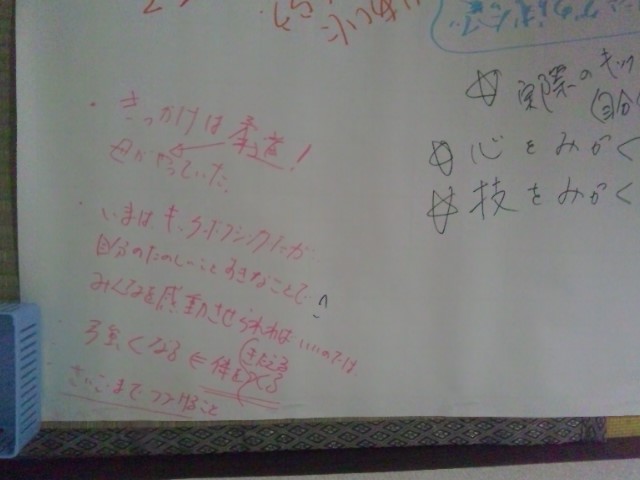 ・きっかけは柔道!
母がやっていた。
・いまはキックボクシングだが
自分のたのしいこと好きなことで
みんなを感動させられればいいのでは
強くなる ⇐ 体をつくる
きたえる
さいごまでつづけること
☆ 実際のキッ
(自分
☆ 心をみがく
☆ 技をみがく